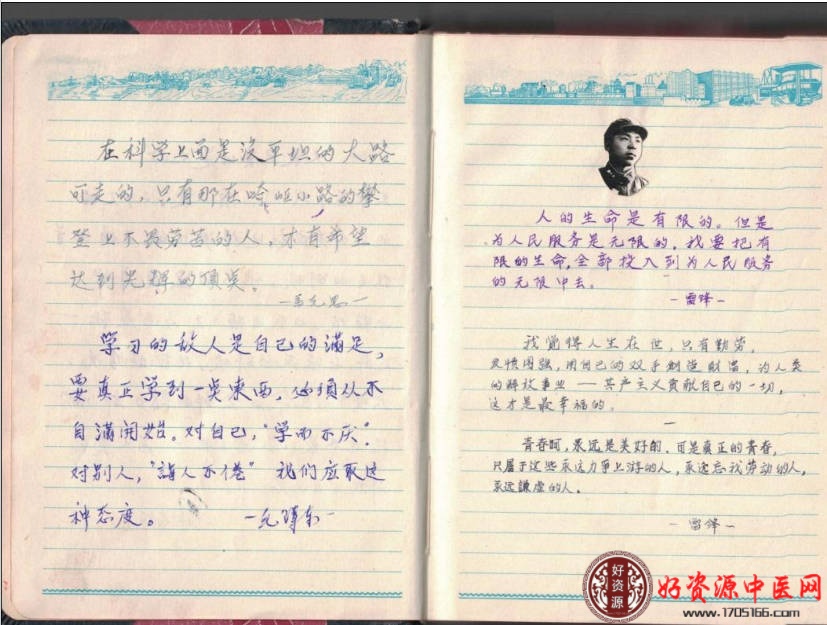 在科学上面是没平坦的大路
可走的，只有那在崎岖小路的攀
登上不畏劳苦的人，才有希望
达到光辉的顶点。
—马克思—
学习的敌人是自己的满足，
要真正学到一点东西，必须从不
自满开始。对自己，"学而不厌"。
对别人，"诲人不倦" 我们应取这
种态度。
—毛泽东—
人的生命是有限的。但是
为人民服务是无限的，我要把有
限的生命，全部投入到为人民服务
的无限中去。
—雷锋—
我觉得人生在世，只有勤劳，
发愤图强，用自己的双手創造财富，为人类
的解放事业——共产主义贡献自己的一切，
这才是最幸福的。
—
青春呵，永远是美好的，可是真正的青春，
只属于这些永远力争上游的人，永远忘我劳动的人，
永远謙虚的人。
—雷锋—
好资源
好资源中医网
www.1705166.com